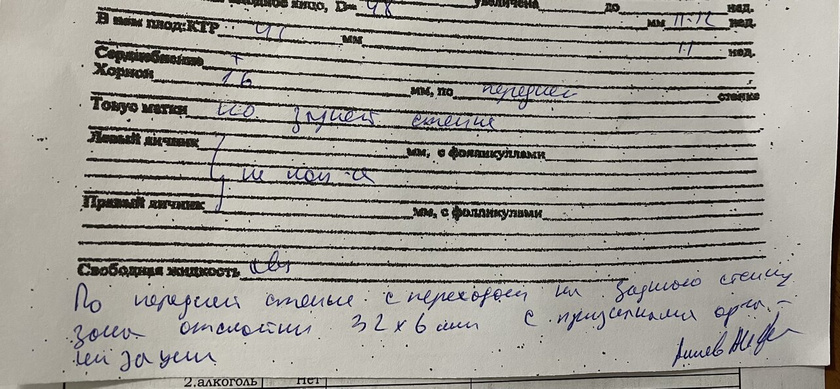 яйцо, D= 48 увеличена до нед.
В нем плод:КТР 41 мм мм 11-12 нед.
11 нед.
Сердцебиение +
Хорион 16 мм, по передней стенке
Тонус матки по задней стенке
Левый яичник мм, с фолликулами
не лоц-ся
Правый яичник мм, с фолликулами
Свободная жидкость
По передней стенке с переходом на заднюю стенку
зона отслойки 32х6 мм с признаками орга-
низации
2.алкоголь Нет